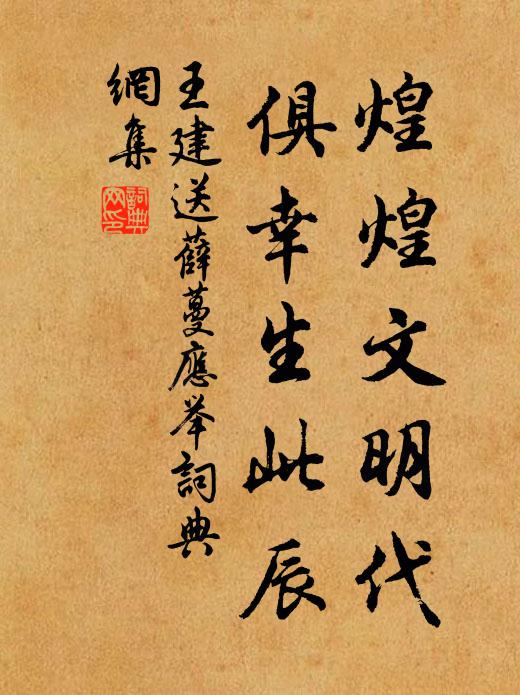 煌煌文明代
俱幸生此辰
王建送薛蔓應举詞典
網集
詞典
网印